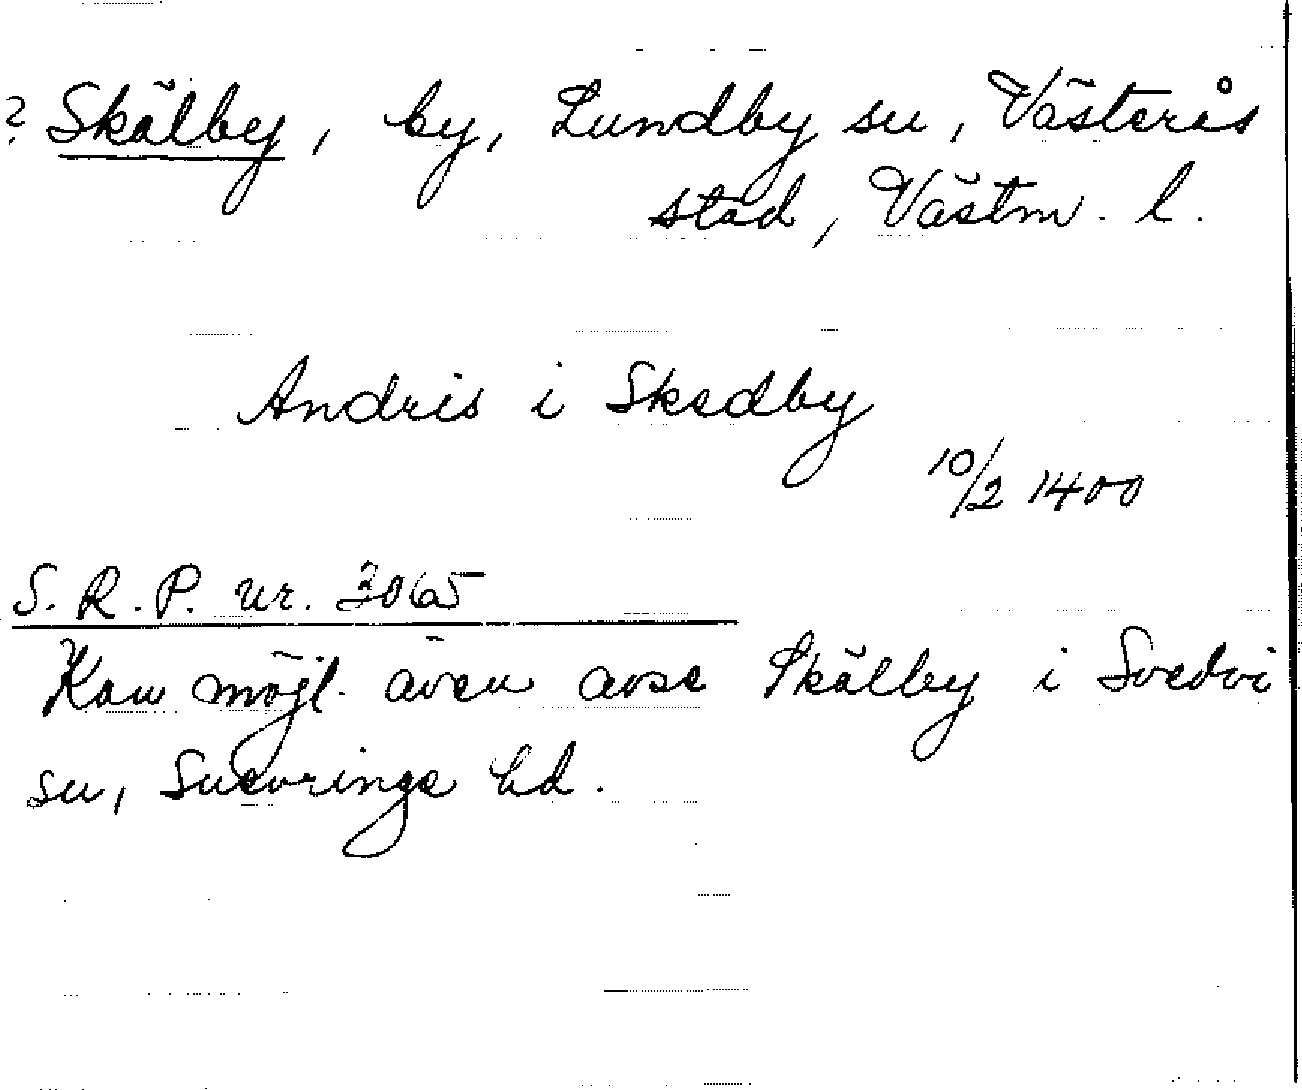 ? Skälby, by, Lundby sn, Västerås
stad, Västm. l.
Andris i Skedby
10/2 1400
S. R. P. nr. 3065
Kan möjl. även avse Skälby i Svedvi
sn, Snevringe hd.